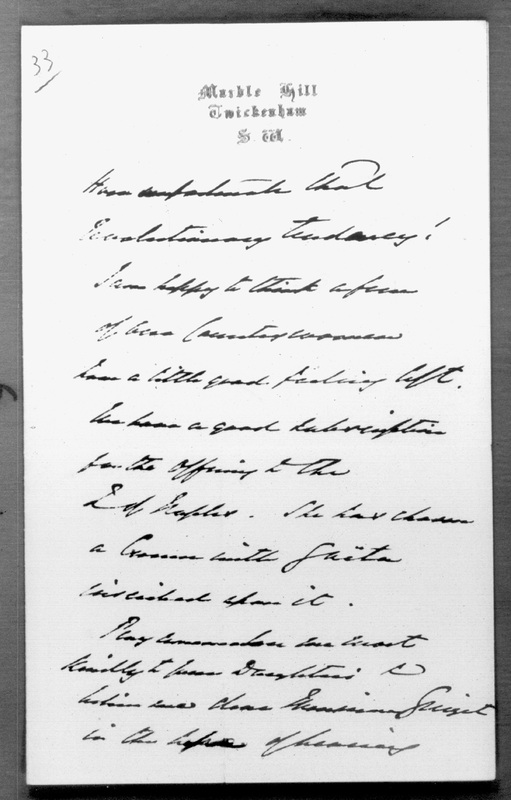 33
Marble Hill
Twickenham
S. W.
How unfortunate that
Revolutionary tendency!
I am happy to think a few
of our Countrywomen
have a little good feeling left.
We have a good subscription
for the offering to the
Q of Naples. She has chosen
a Crown with Gaëta
inscribed upon it.
Pray remember me most
kindly to your Daughters &
believe me dear Monsieur Guizot
in the hope of hearing